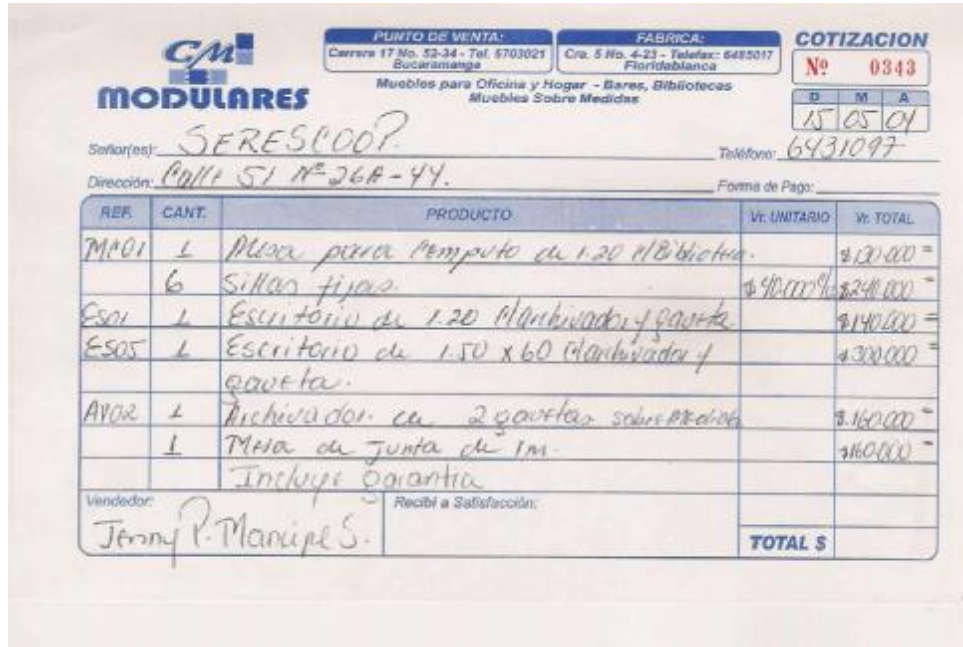 CM
MODULARES
PUNTO DE VENTA:
Carrera 17 No. 52-34 - Tel. 5703021
Bucaramanga
FABRICA:
Cra. 5 No. 4-23 - Telefax: 6485017
Floridablanca
Muebles para Oficina y Hogar - Bares, Bibliotecas
Muebles Sobre Medidas
COTIZACION
Nº 0343
D M A
15 05 01
Señor(es): SERESCOOP.
Teléfono: 6431097
Dirección: Calle 51 Nº 26A-44.
Forma de Pago:
REF. CANT. PRODUCTO Vr. UNITARIO Vr. TOTAL
1 Mesa para Computo de 1.20 c/Biblioteca.
6 Sillas fijas. $240.000=
ES01 1 Escritorio de 1.20 c/archivador y gaveta $140.000=
ES05 1 Escritorio de 1.50 x 60 c/archivador y $300.000=
gaveta.
1 Archivador de 2 gavetas sobre Medida $.160.000=
1 Mesa de Junta de 1m. $160.000=
Incluye Garantia
Vendedor:
Jenny P. Mancipe S.
Recibí a Satisfacción:
TOTAL $